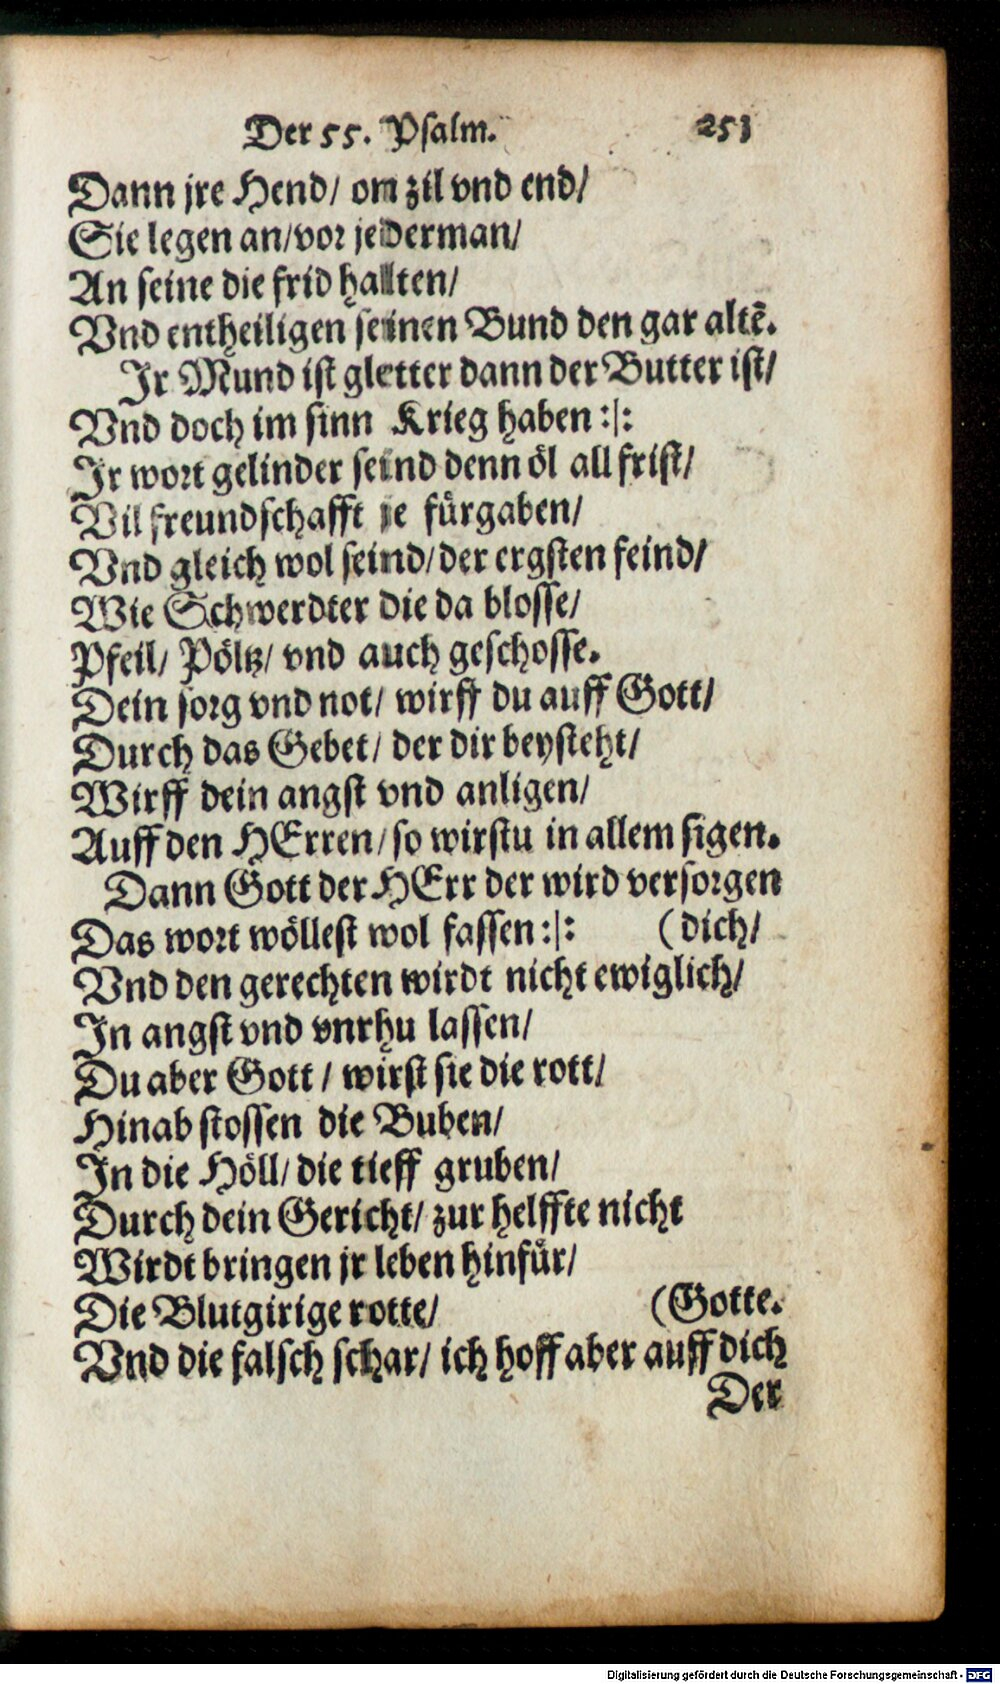 Der 55. Psalm. 253
Dann jre Hend/ on zil vnd end/
Sie legen an/vor jederman/
An seine die frid hallten/
Vnd entheiligen seinen Bund den gar altē.
Jr Mund ist gletter dann der Butter ist/
Vnd doch im sinn Krieg haben :|:
Jr wort gelinder seind denn öl all frist/
Vil freundschafft je fürgaben/
Vnd gleich wol seind/der ergsten feind/
Wie Schwerdter die da blosse/
Pfeil/ Pöltz/ vnd auch geschosse.
Dein sorg vnd not/ wirff du auff Gott/
Durch das Gebet/ der dir beysteht/
Wirff dein angst vnd anligen/
Auff den HErren/so wirstu in allem sigen.
Dann Gott der HErr der wird versorgen
Das wort wöllest wol fassen :|: (dich/
Vnd den gerechten wirdt nicht ewiglich/
In angst vnd vnrhu lassen/
Du aber Gott / wirst sie die rott/
Hinab stossen die Buben/
In die Höll/die tieff gruben/
Durch dein Gericht/ zur helffte nicht
Wirdt bringen jr leben hinfür/
Die Blutgirige rotte/ (Gotte.
Vnd die falsch schar/ ich hoff aber auff dich
Der
Digitalisierung gefördert durch die Deutsche Forschungsgemeinschaft - DFG